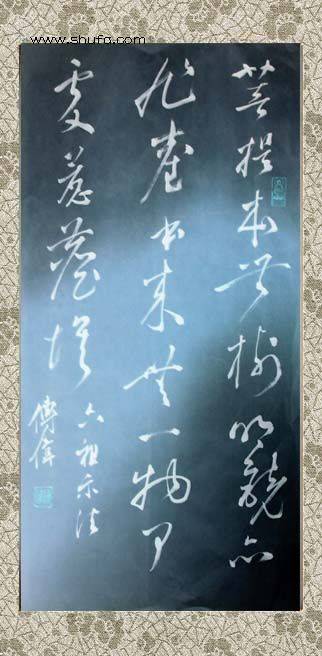 www.shufa.com
菩提本無樹明鏡亦
非臺本來無一物何
處惹塵埃
六祖示法
傅偉